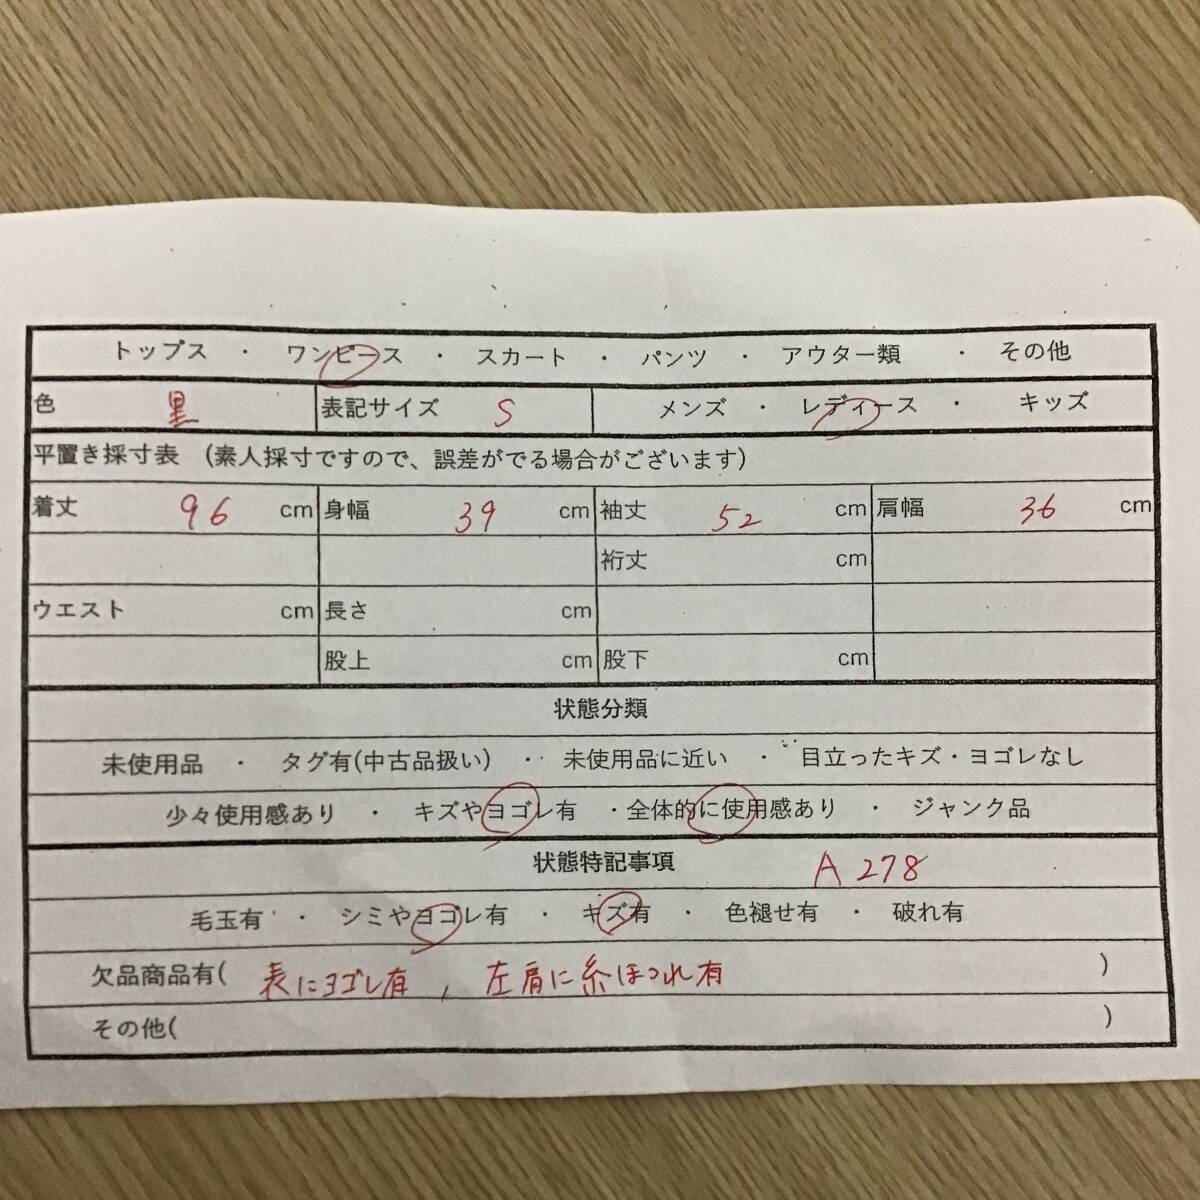 トップス ・ ワンピース ・ スカート ・ パンツ ・ アウター類 ・ その他
色 黒 表記サイズ S メンズ ・ レディース ・ キッズ
平置き採寸表 (素人採寸ですので、誤差がでる場合がございます)
着丈 96 cm 身幅 39 cm 袖丈 52 cm 肩幅 36 cm
裄丈 cm
ウエスト cm 長さ cm
股上 cm 股下 cm
状態分類
未使用品 ・ タグ有(中古品扱い) ・ 未使用品に近い ・ 目立ったキズ・ヨゴレなし
少々使用感あり ・ キズやヨゴレ有 ・全体的に使用感あり ・ ジャンク品
状態特記事項 A 278
毛玉有 ・ シミやヨゴレ有 ・ キズ有 ・ 色褪せ有 ・ 破れ有
欠品商品有( 表にヨゴレ有 , 左肩に糸ほつれ有 )
その他( )